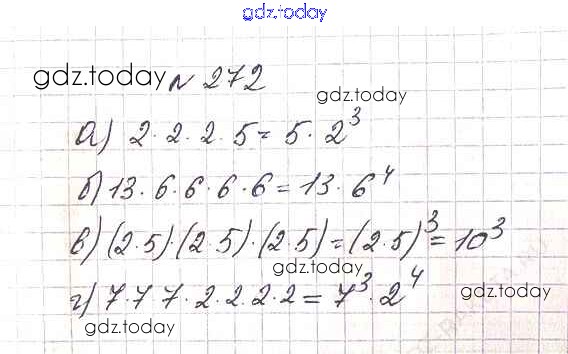 gdz.today
gdz.today № 272
gdz.today
а) 2·2·2·5=5·2³
б) 13·6·6·6·6=13·6⁴
в) (2·5)·(2·5)·(2·5)=(2·5)³=10³
gdz.today
г) 7·7·7·2·2·2·2=7³·2⁴
gdz.today
gdz.today